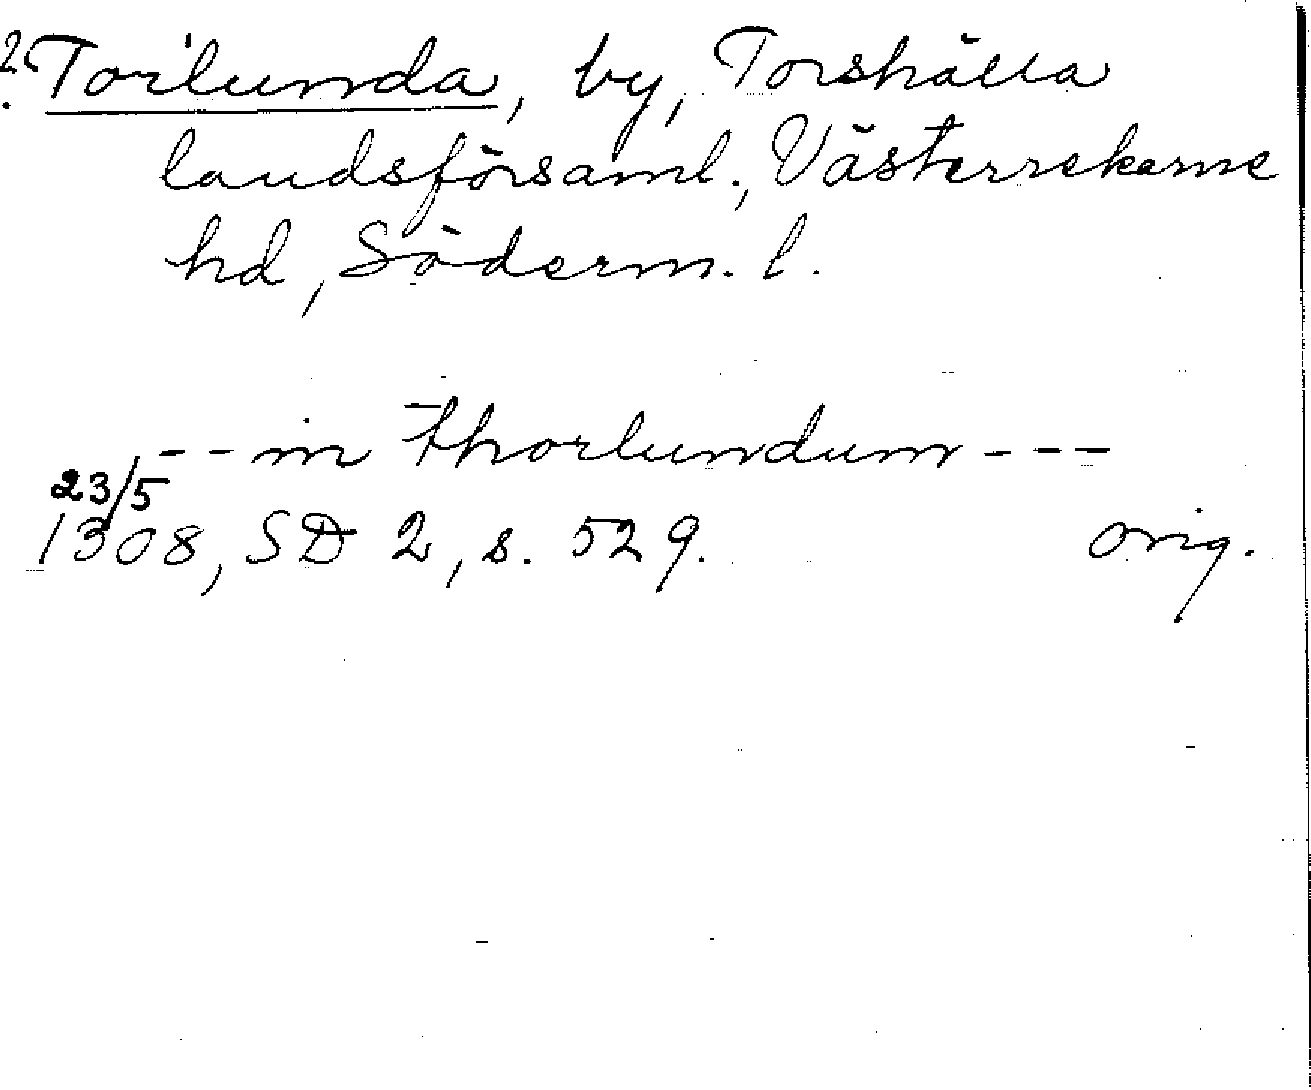 ? Torlunda, by, Torshälla
landsförsaml., Västerrekarne
hd, Söderm. l.
-- in thorlundum ---
23/5
1308, SD 2, s. 529. orig.